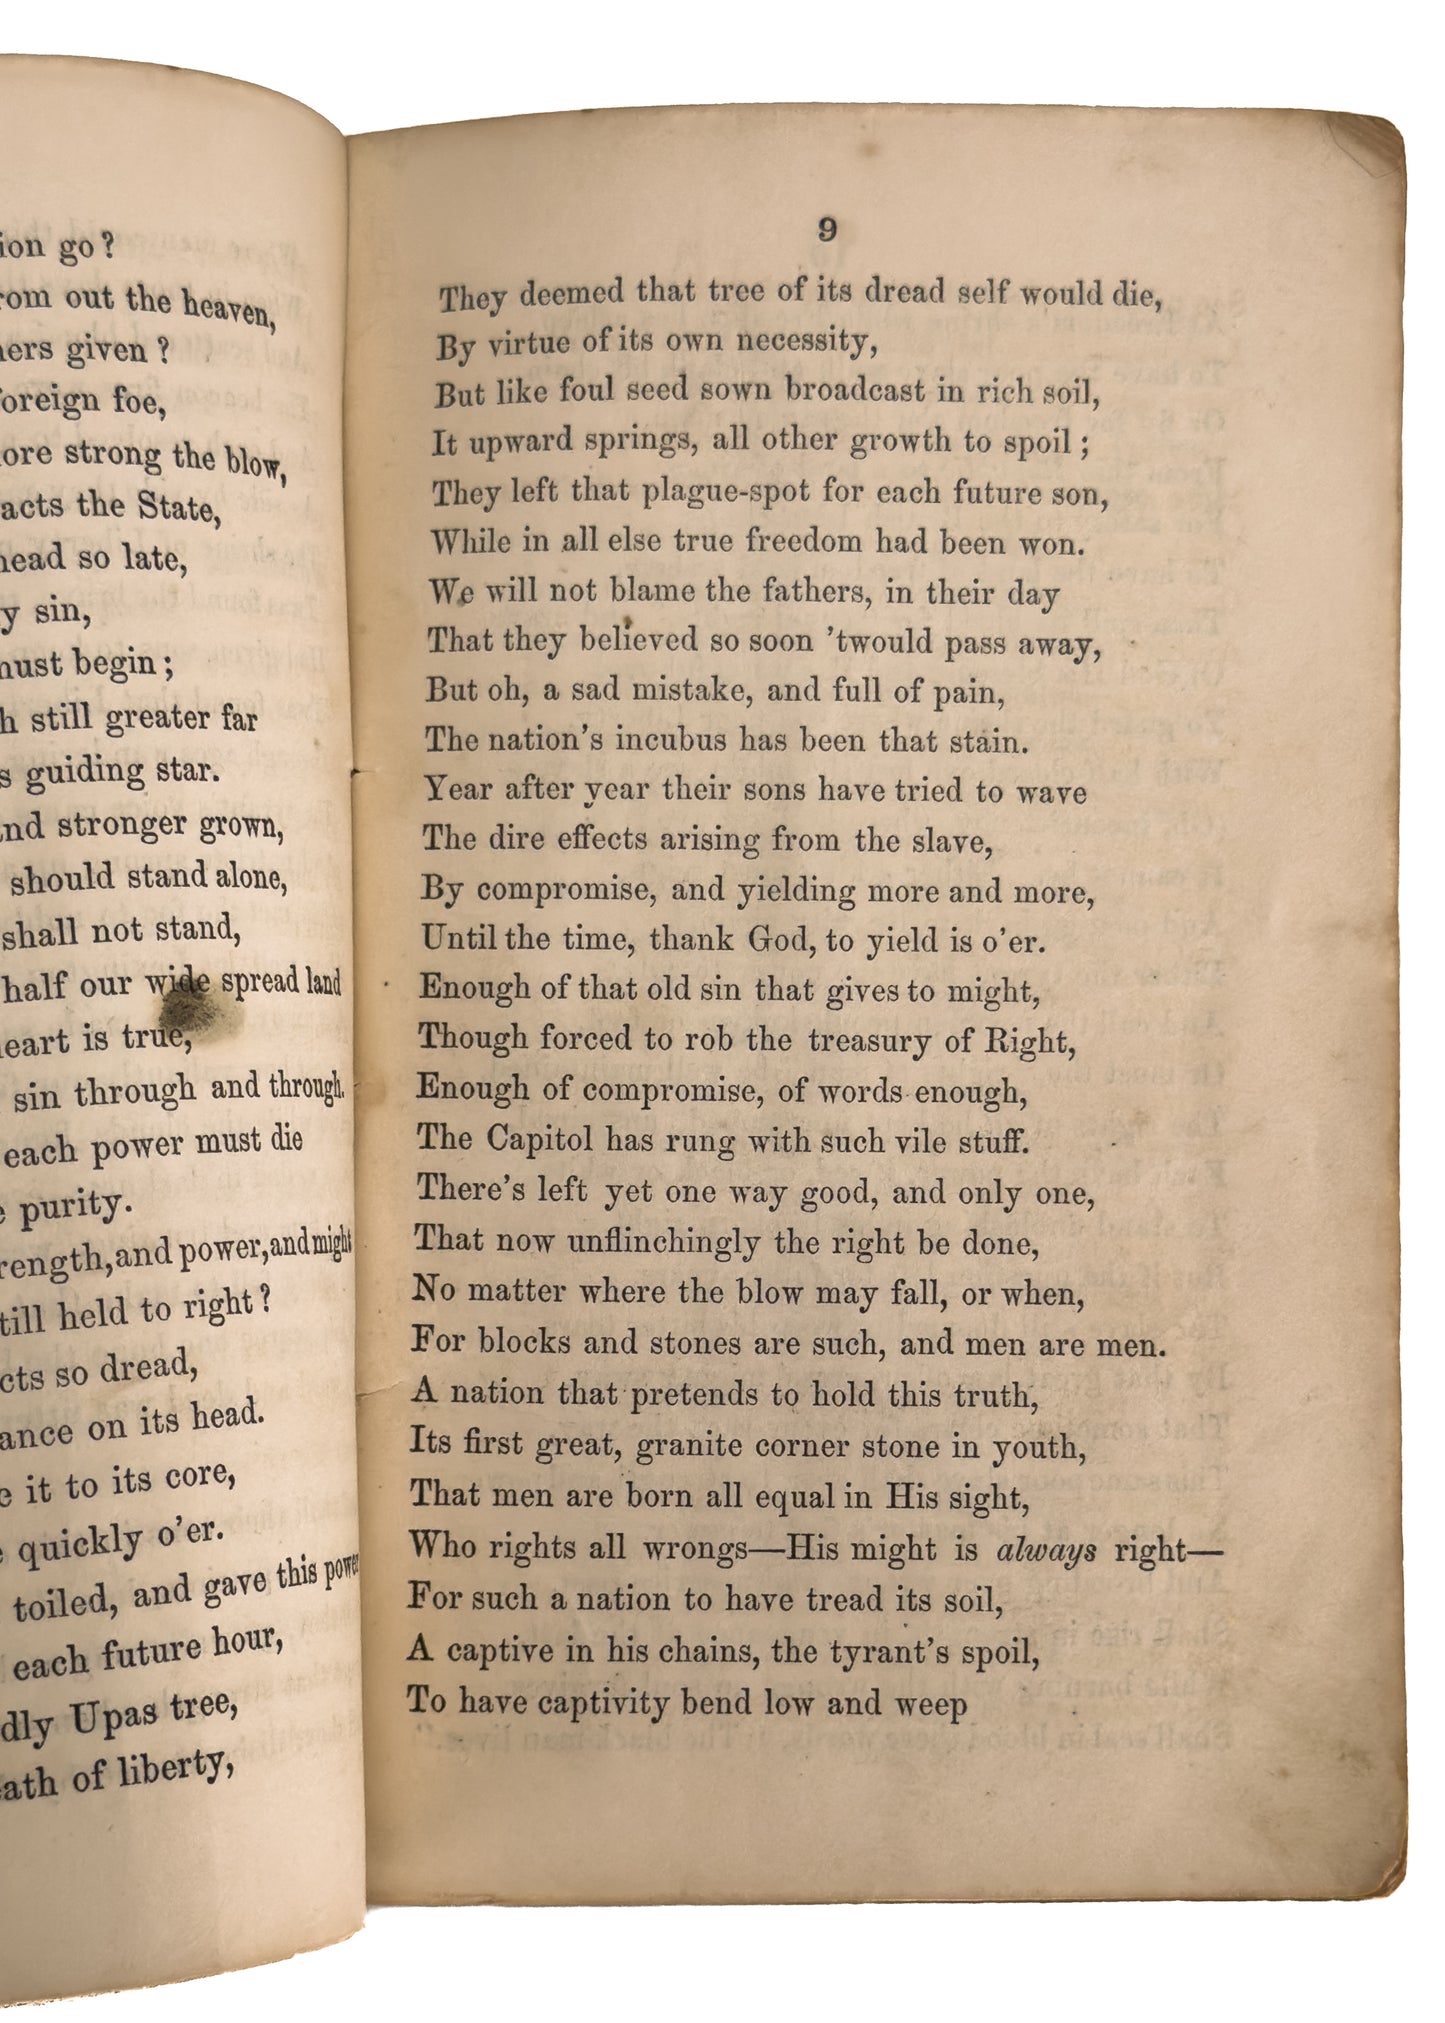 ion go?
rom out the heaven,
ers given?
oreign foe,
ore strong the blow,
acts the State,
head so late,
y sin,
must begin;
h still greater far
s guiding star.
and stronger grown,
should stand alone,
shall not stand,
half our wide spread land
heart is true,
sin through and through.
each power must die
e purity.
rength, and power, and might
till held to right?
cts so dread,
ance on its head.
e it to its core,
quickly o'er.
toiled, and gave this power
each future hour,
dly Upas tree,
ath of liberty,
9
They deemed that tree of its dread self would die,
By virtue of its own necessity,
But like foul seed sown broadcast in rich soil,
It upward springs, all other growth to spoil;
They left that plague-spot for each future son,
While in all else true freedom had been won.
We will not blame the fathers, in their day
That they believed so soon 'twould pass away,
But oh, a sad mistake, and full of pain,
The nation's incubus has been that stain.
Year after year their sons have tried to wave
The dire effects arising from the slave,
By compromise, and yielding more and more,
Until the time, thank God, to yield is o'er.
Enough of that old sin that gives to might,
Though forced to rob the treasury of Right,
Enough of compromise, of words enough,
The Capitol has rung with such vile stuff.
There's left yet one way good, and only one,
That now unflinchingly the right be done,
No matter where the blow may fall, or when,
For blocks and stones are such, and men are men.
A nation that pretends to hold this truth,
Its first great, granite corner stone in youth,
That men are born all equal in His sight,
Who rights all wrongs—His might is always right—
For such a nation to have tread its soil,
A captive in his chains, the tyrant's spoil,
To have captivity bend low and weep